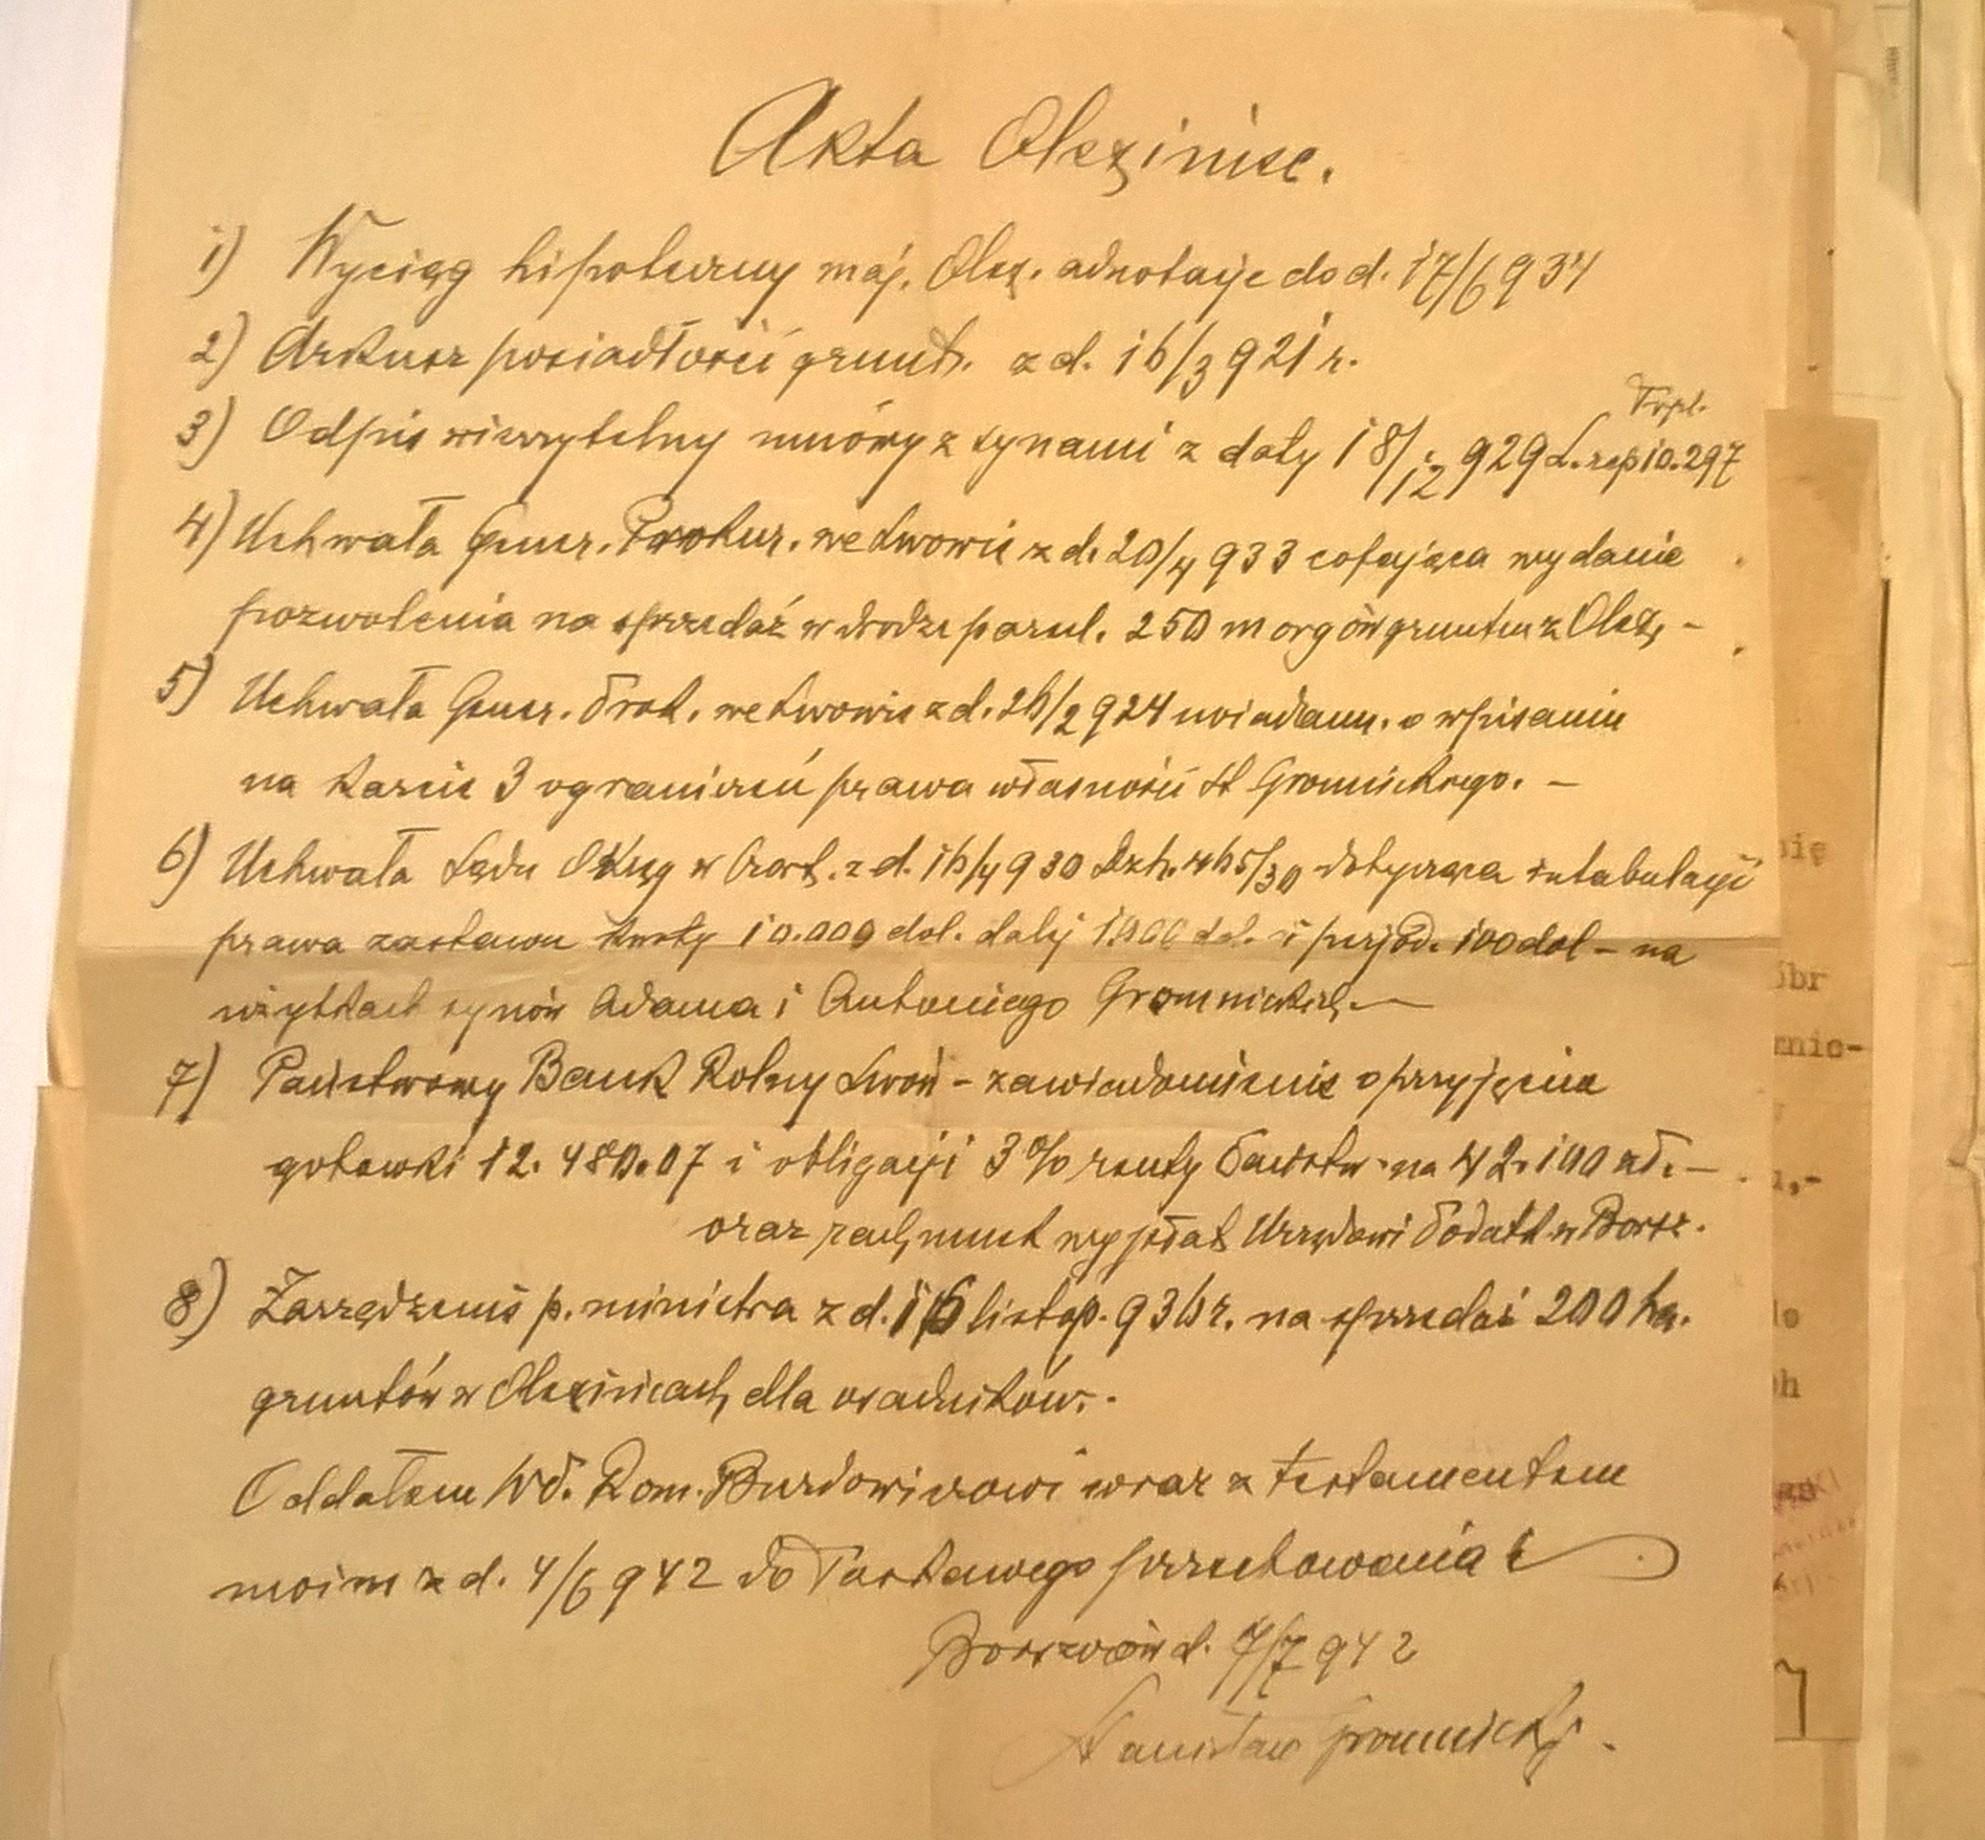 Akta Olexiniec.
1) Wyciąg hipoteczny maj. Olex. adnotacje do d. 17/6 934
2) Arkusz posiadłości grunt. z d. 16/3 921 r.
Topl.
3) Odpis wierzytelny umowy z synami z daty 18/12 929 L. rep 10.297
4) Uchwała Gener. Prokur. we Lwowie z d. 20/4 933 cofająca wydanie
pozwolenia na sprzedaż w drodze parcel. 250 morgów gruntu z Olex. -
5) Uchwała Gener. Prok. we Lwowie z d. 26/2 924 uwiadam. o wpisaniu
na karcie 3 ograniczeń prawa własności St Gromnickiego. -
6) Uchwała Sądu Okręg w Czort. z d. 16/4 930 Dzh. 465/30 dotycząca intabulacji
prawa zastawu kwoty 10.000 dol. dalej 1.000 dol. i perjod. 100 dol - na
użytkach synów Adama i Antoniego Gromnickich. -
7) Państwowy Bank Rolny Lwów - zawiadomienie o przyjęciu
gotowki 12.480.07 i obligacji 3% renty Państw. na 42.100 zł. -
oraz rachunek wypłat Urzędowi Podatk w Borsz.
8) Zarządzenie p. ministra z d. 16 listop. 936 r. na sprzedaż 200 ha.
gruntów w Olexińcach dla osadników. -
Oddałem Wd. Rom. Burdowiczowi wraz z testamentem
moim z d. 4/6 942 do Łaskawego przechowania
Borszczów d. 7/7 942
Stanisław Gromnicki.
ię
br
nic-
,-
h